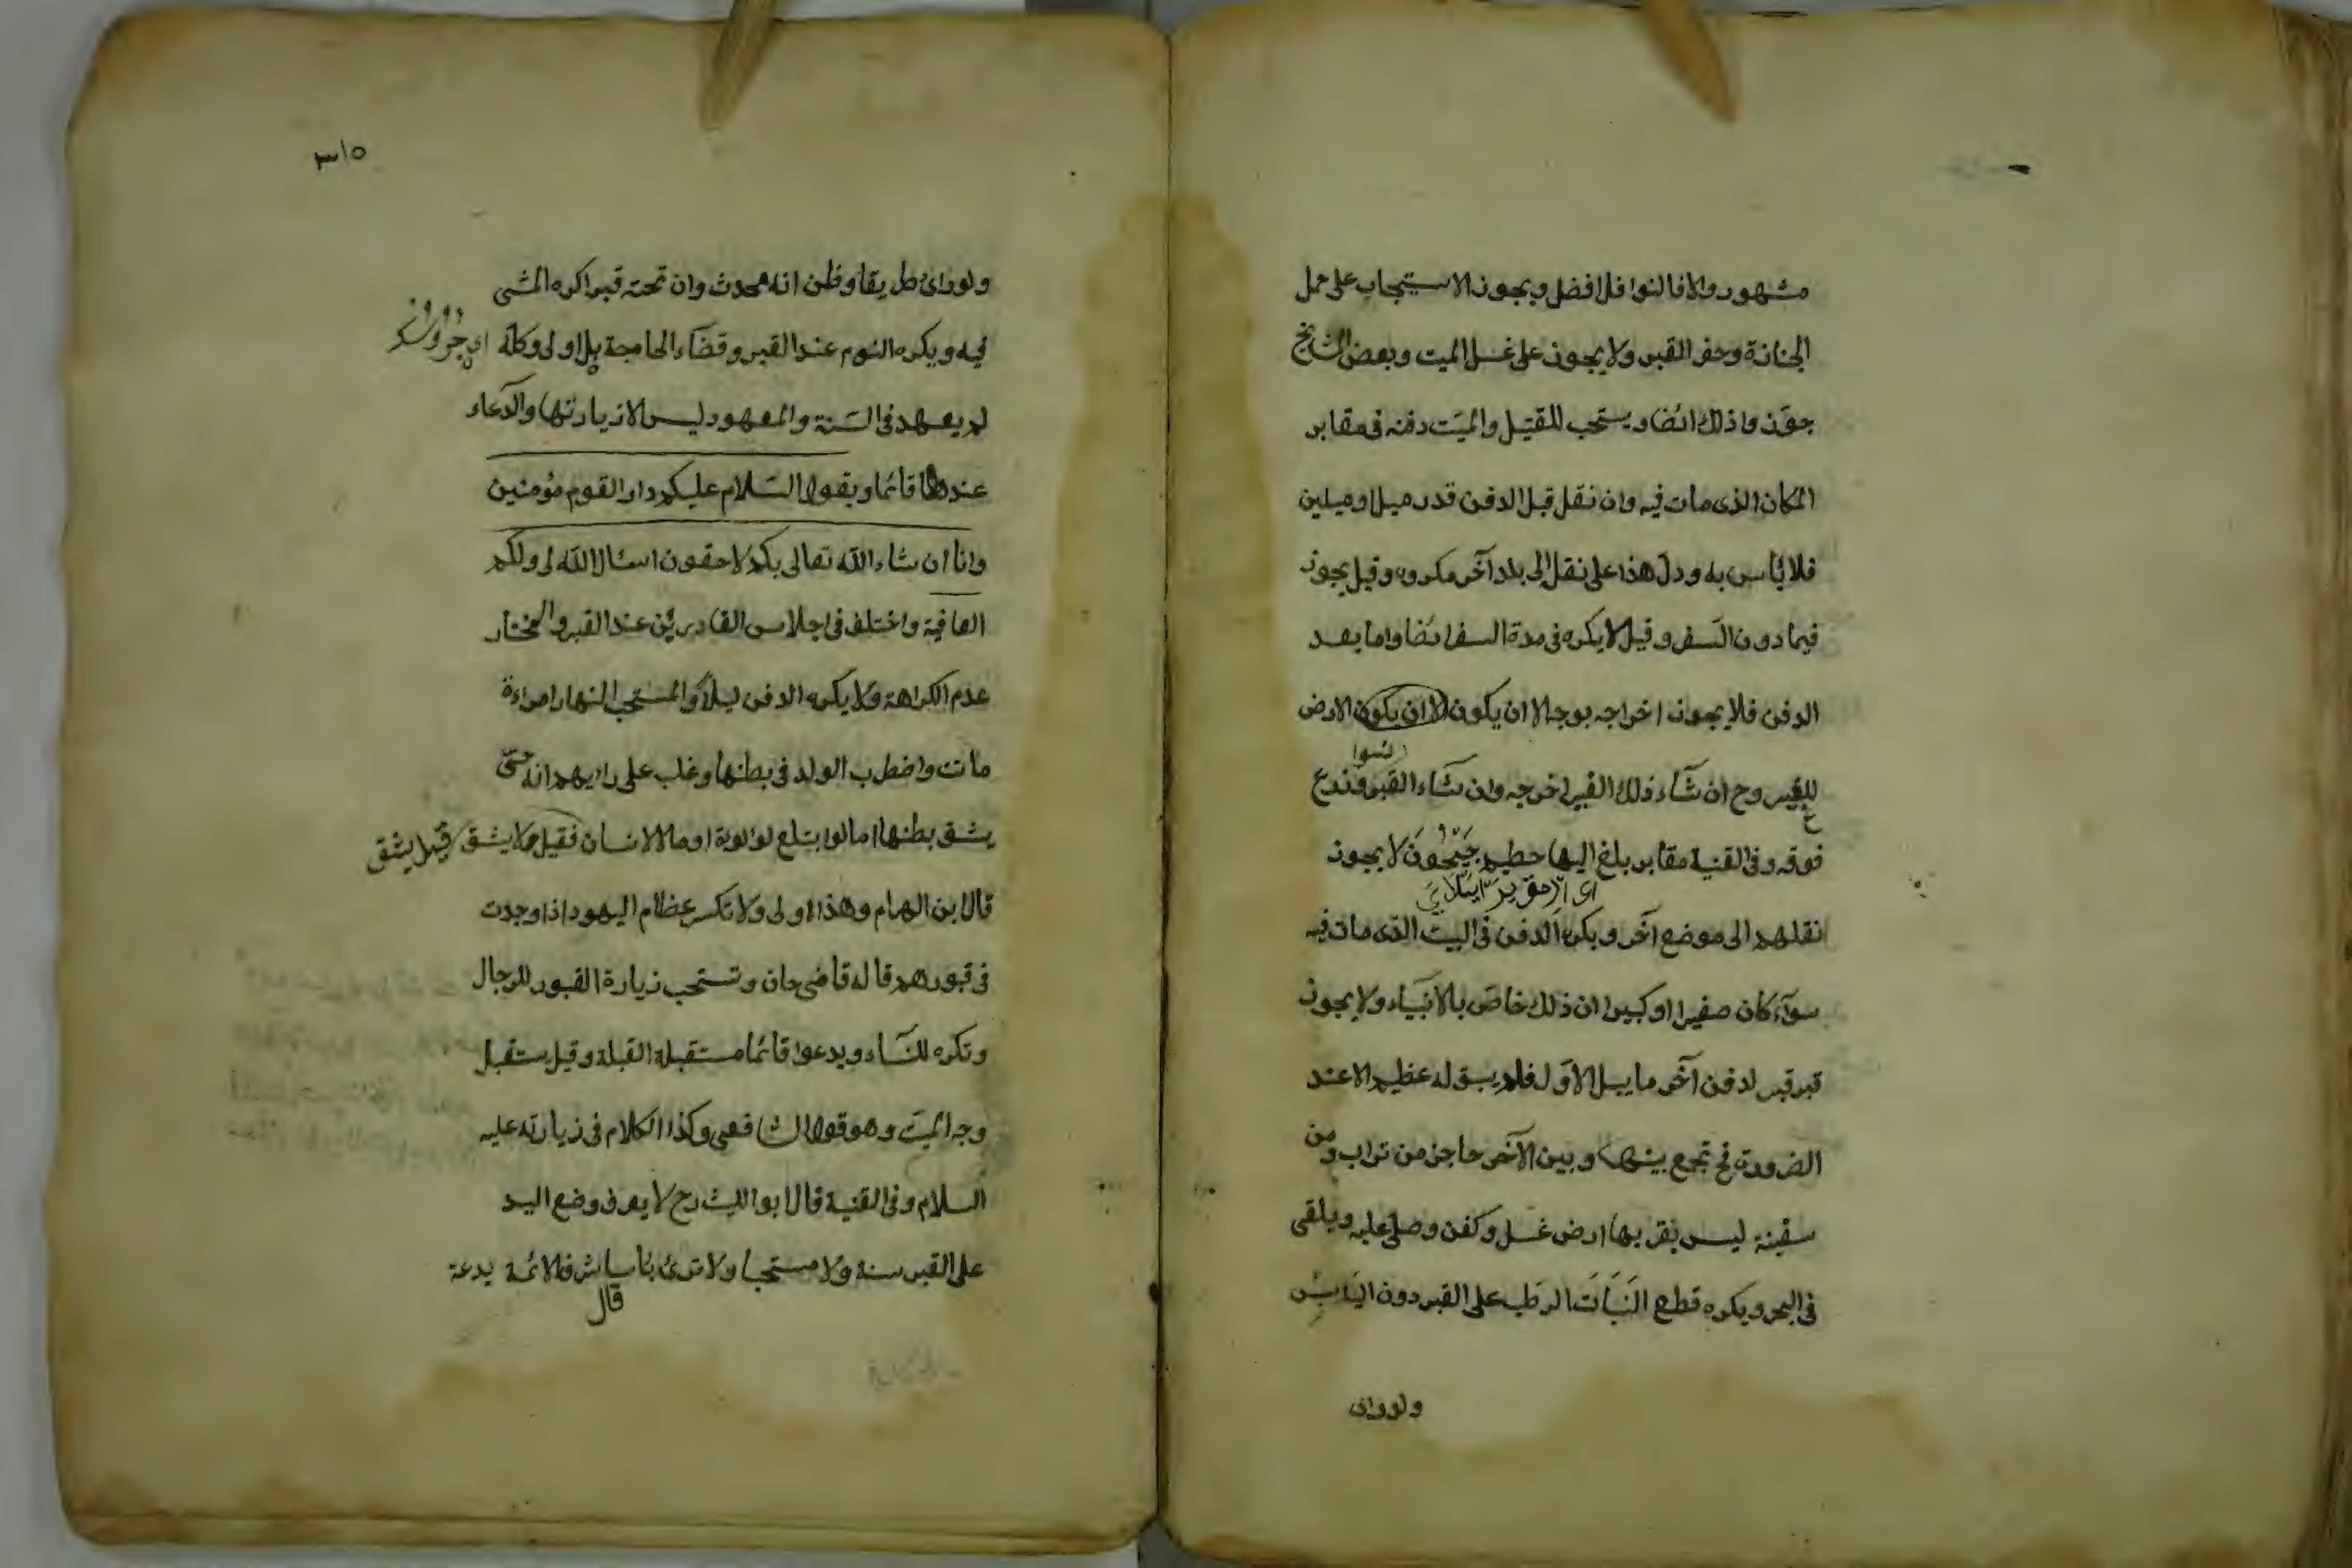 مشهور والا فالنوافل افضل ويجوز الاستيجاب على حمل
الجنازة وحفر القبر ولا يجوز على غسل الميت وبعض المشايخ
جوّز وا ذلك ائضا ويستحب للقتيل والميّت دفنه فى مقابر
المكان الذى مات فيه وان نقل قبل الدفن قدر ميل او ميلين
فلا بأس به ودل هذا على نقل الى بلد آخر مكروه وقيل يجوز
فيما دون السفر وقيل لا يكره فى مدة السفر ائضا واما بعد
الدفن فلا يجوز اخراجه بوجه الا ان يكون الا ان يكون الارض
للغير وح ان شاء ذلك الغير اخرجه وان شاء القبر وزرع
فوقه وفى القنية مقابر بلغ اليها حطيم جيحون لا يجوز
نقلهم الى موضع آخر ويكره الدفن فى البيت الذى مات فيه
سواء كان صغيرا او كبيرا ان ذلك خاص بالانبياء ولا يجوز
قبر قبر لدفن آخر ما يبل الاول فلم يبق له عظيم الا عند
الضرورة فح تجمع بينهما وبين الآخر حاجز من تراب ومن
سفينة ليس بقربها ارض غسل وكفن وصلى عليه ويلقى
فى البحر ويكره قطع النبات الرطب على القبر دون اليابس
ولوراى
٣١٥
ولوراى طريقا وظن انه محدث وان تحته قبرا كره المشى
فيه ويكره النوم عند القبر وقضاء الحاجة بل اولى وكلّه
لم يعهد فى السنة والمعهود ليس الا زيارتها والدعاء
عندها قائما ويقول السلام عليكم دار القوم مؤمنين
وانا ان شاء الله تعالى بكم لاحقون اسئال الله لى ولكم
العافية واختلف فى اجلاس القادرين عند القبر والمختار
عدم الكراهة ولا يكره الدفن ليلا والمستحب النهار امراءة
ماتت واضطرب الولد فى بطنها وغلب على رايهم انه حىّ
يشق بطنها اما لو ابتلع لؤلوة او مال الانسان فقيل لا يشق قيل يشق
قال ابن الهمام وهذا اولى ولا تكسر عظام اليهود اذا وجدت
فى قبورهم قاله قاضى خان وتستحب زيارة القبور للرجال
وتكره للنساء ويدعوا قائما مستقبلة القبلة وقيل يستقبل
وجه الميت وهو قول الشافعى وكذا الكلام فى زيارته عليه
السلام وفى القنية قال ابو الليث رح لا يعرف وضع اليد
على القبر سنة ولا مستحبا ولا ترى بأسا بدعة
قال